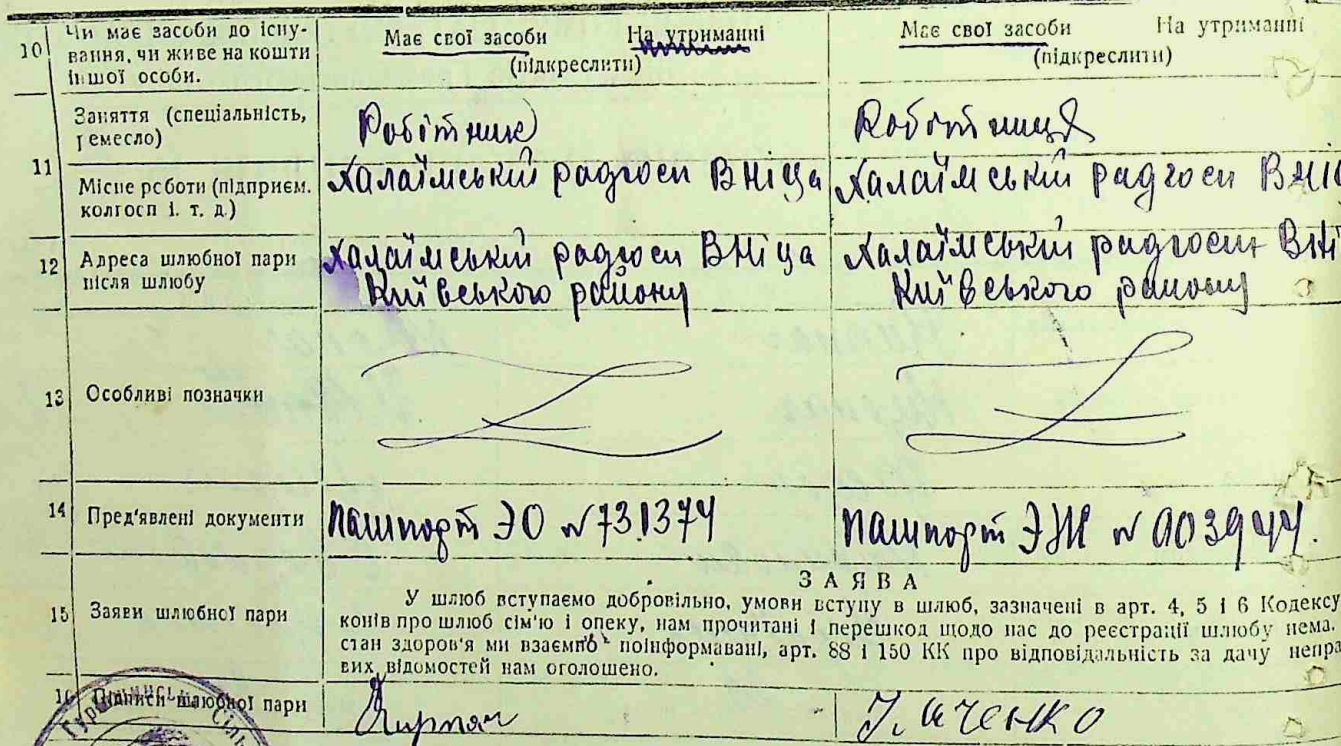 10 Чи має засоби до існу-
вання, чи живе на кошти
іншої особи.
Має свої засоби На утриманні
(підкреслити)
Має свої засоби На утриманні
(підкреслити)
11 Заняття (спеціальність,
ремесло)
Робітник
Робітниця
Місце роботи (підприєм.
колгосп і. т. д.)
Халаїмський радгосп ВНІЦа
Халаїмський радгосп ВНІЦ
12 Адреса шлюбної пари
після шлюбу
Халаїмський радгосп ВНІЦа
Київського району
Халаїмський радгосп ВНІ
Київського району
13 Особливі позначки
14 Пред'явлені документи
пашпорт ЭО № 731374
пашпорт ЭЖ № 003944.
15 Заяви шлюбної пари
ЗАЯВА
У шлюб вступаємо добровільно, умови вступу в шлюб, зазначені в арт. 4, 5 і 6 Кодексу
конів про шлюб сім'ю і опеку, нам прочитані і перешкод щодо нас до реєстрації шлюбу нема.
стан здоров'я ми взаємно поінформавані, арт. 88 і 150 КК про відповідальність за дачу непра
вих відомостей нам оголошено.
16 Підписи шлюбної пари